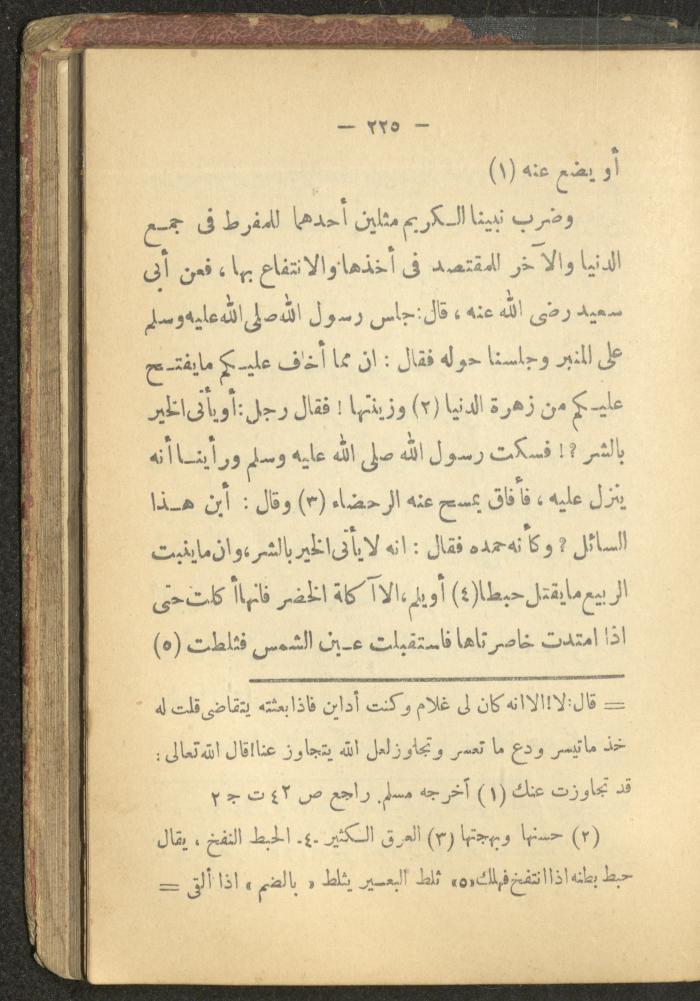 — ٢٢٥ —
أو يضع عنه (١)
وضرب نبينا الكريم مثلين أحدهما للمفرط فى جمع
الدنيا والآخر للمقتصد فى أخذها والانتفاع بها ، فعن أبى
سعيد رضى الله عنه ، قال: جلس رسول الله صلى الله عليه وسلم
على المنبر وجلسنا حوله فقال : ان مما أخاف عليكم ما يفتح
عليكم من زهرة الدنيا (٢) وزينتها ! فقال رجل: أو يأتى الخير
بالشر ؟! فسكت رسول الله صلى الله عليه وسلم ورأينا أنه
ينزل عليه ، فأفاق يمسح عنه الرحضاء (٣) وقال : أين هذا
السائل ؟ وكأنه حمده فقال : انه لا يأتى الخير بالشر، وان ما ينبت
الربيع ما يقتل حبطا (٤) أو يلم، الا آكلة الخضر فانها أكلت حتى
اذا امتدت خاصرتاها فاستقبلت عين الشمس فثلطت (٥)
= قال: لا! الا انه كان لى غلام وكنت أداين فاذا بعثته يتقاضى قلت له
خذ ما تيسر ودع ما تعسر وتجاوز لعل الله يتجاوز عنا! قال الله تعالى :
قد تجاوزت عنك (١) أخرجه مسلم. راجع ص ٤٢ ت ج ٢
(٢) حسنها وبهجتها (٣) العرق الكثير -٤- الحبط النفخ ، يقال
حبط بطنه اذا انتفخ فهلك «٥» ثلط البعير يثلط « بالضم » اذا ألقى =